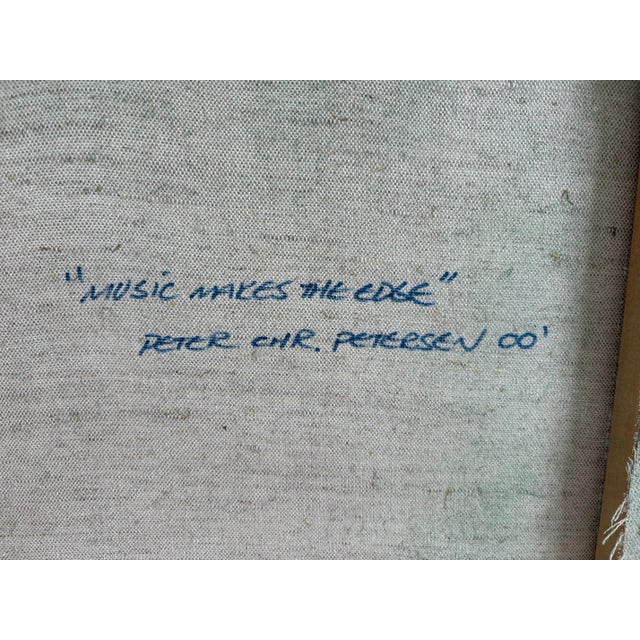 "MUSIC MAKES THE EDGE"
PETER CHR. PETERSEN 00'